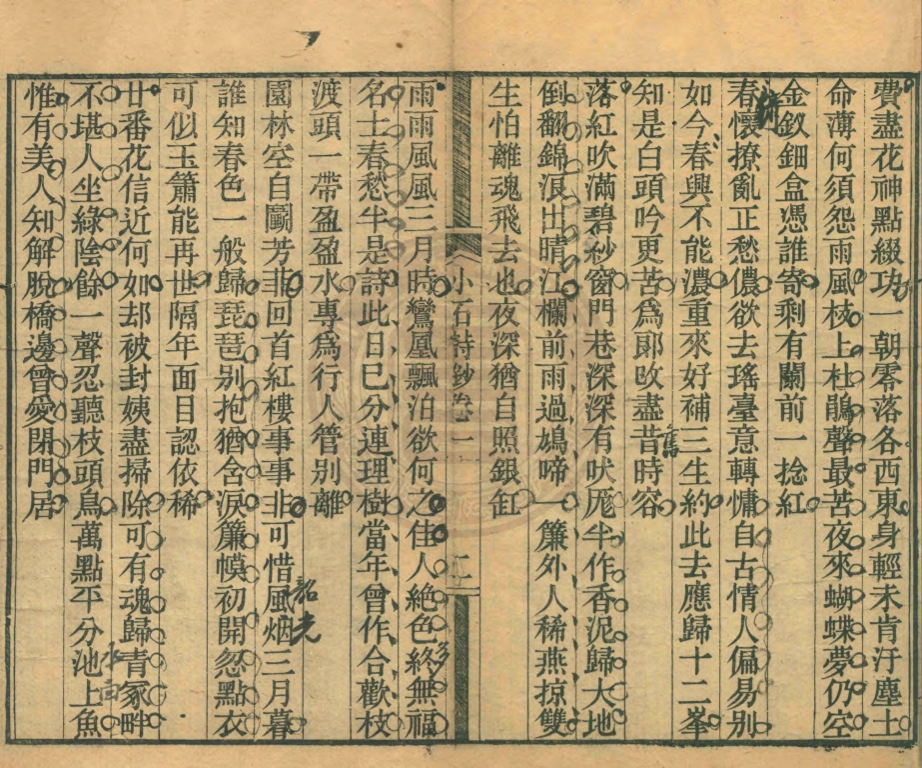 費盡花神點綴功一朝零落各西東身輕未肯汙塵土
命薄何須怨雨風枝上杜鵑聲最苦夜來蝴蝶夢仍空
金釵鈿盒憑誰寄剩有闌前一捻紅
春懷撩亂正愁儂欲去瑤臺意轉慵自古情人偏易別
如今春興不能濃重來好補三生約此去應歸十二峯
知是白頭吟更苦爲郞改盡昔時容
舊
落紅吹滿碧紗窗門巷深深有吠厖半作香泥歸大地
倒翻錦浪出晴江欄前雨過鳩啼一簾外人稀燕掠雙
生怕離魂飛去也夜深猶自照銀缸
小石詩鈔卷一
二
雨雨風風三月時鸞凰飄泊欲何之佳人絶色終無福
多
名士春愁半是詩此日已分連理樹當年曾作合歡枝
渡頭一帶盈盈水專爲行人管別離
園林空自鬬芳菲回首紅樓事事非可惜風烟三月暮
韶光
誰知春色一般歸琵琶別抱猶含淚簾幙初開忽點衣
可似玉簫能再世隔年面目認依稀
廿番花信近何如却被封姨盡掃除可有魂歸青冢畔
不堪人坐綠陰餘一聲忍聽枝頭鳥萬點平分池上魚
水面
惟有美人知解脫橋邊曾愛閉門居